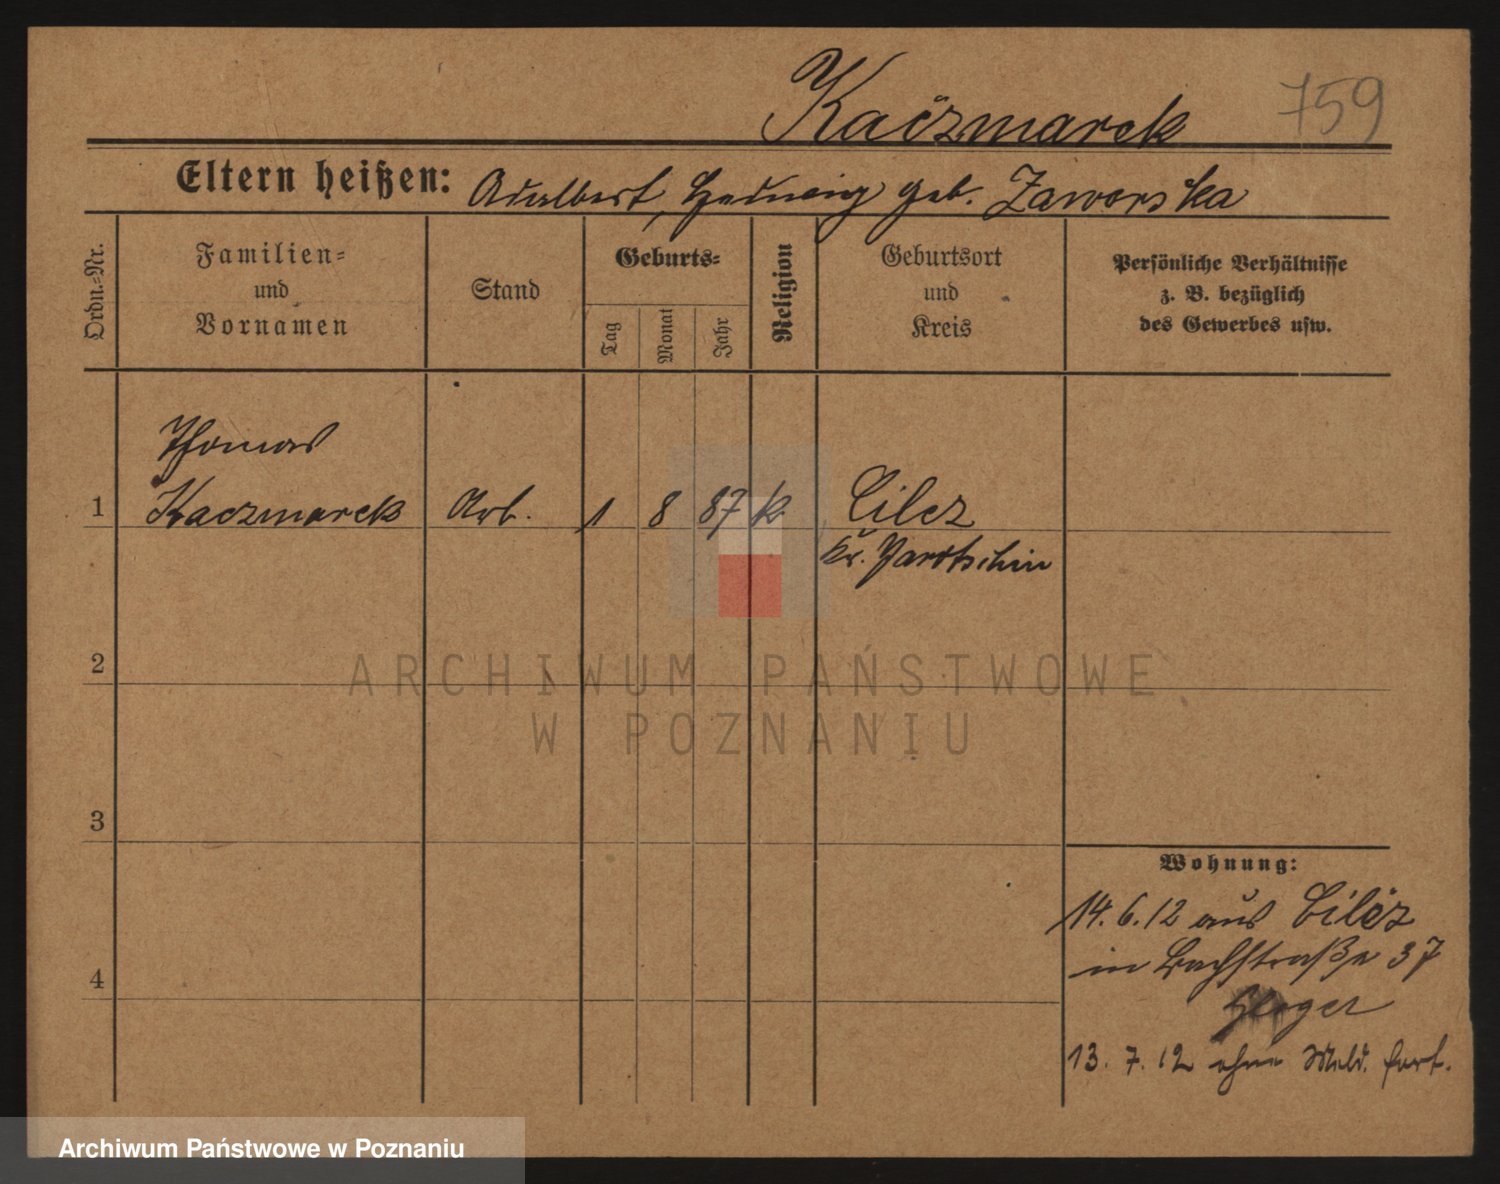 Kaczmarek 759
Eltern heißen: Adalbert, Hedwig geb. Zaworska
Ordn.-Nr.
Familien-
und
Vornamen
Stand
Geburts-
Tag
Monat
Jahr
Religion
Geburtsort
und
Kreis
Persönliche Verhältnisse
z. B. bezüglich
des Gewerbes usw.
Thomas
1 Kaczmarek Arb. 1 8 87 k. Cilcz
Kr. Jarotschin
2
ARCHIWUM PAŃSTWOWE
W POZNANIU
3
Wohnung:
14.6.12 aus Cilcz
in Bachstraße 37
4
13. 7. 12 ohne Meld. fort.
Archiwum Państwowe w Poznaniu